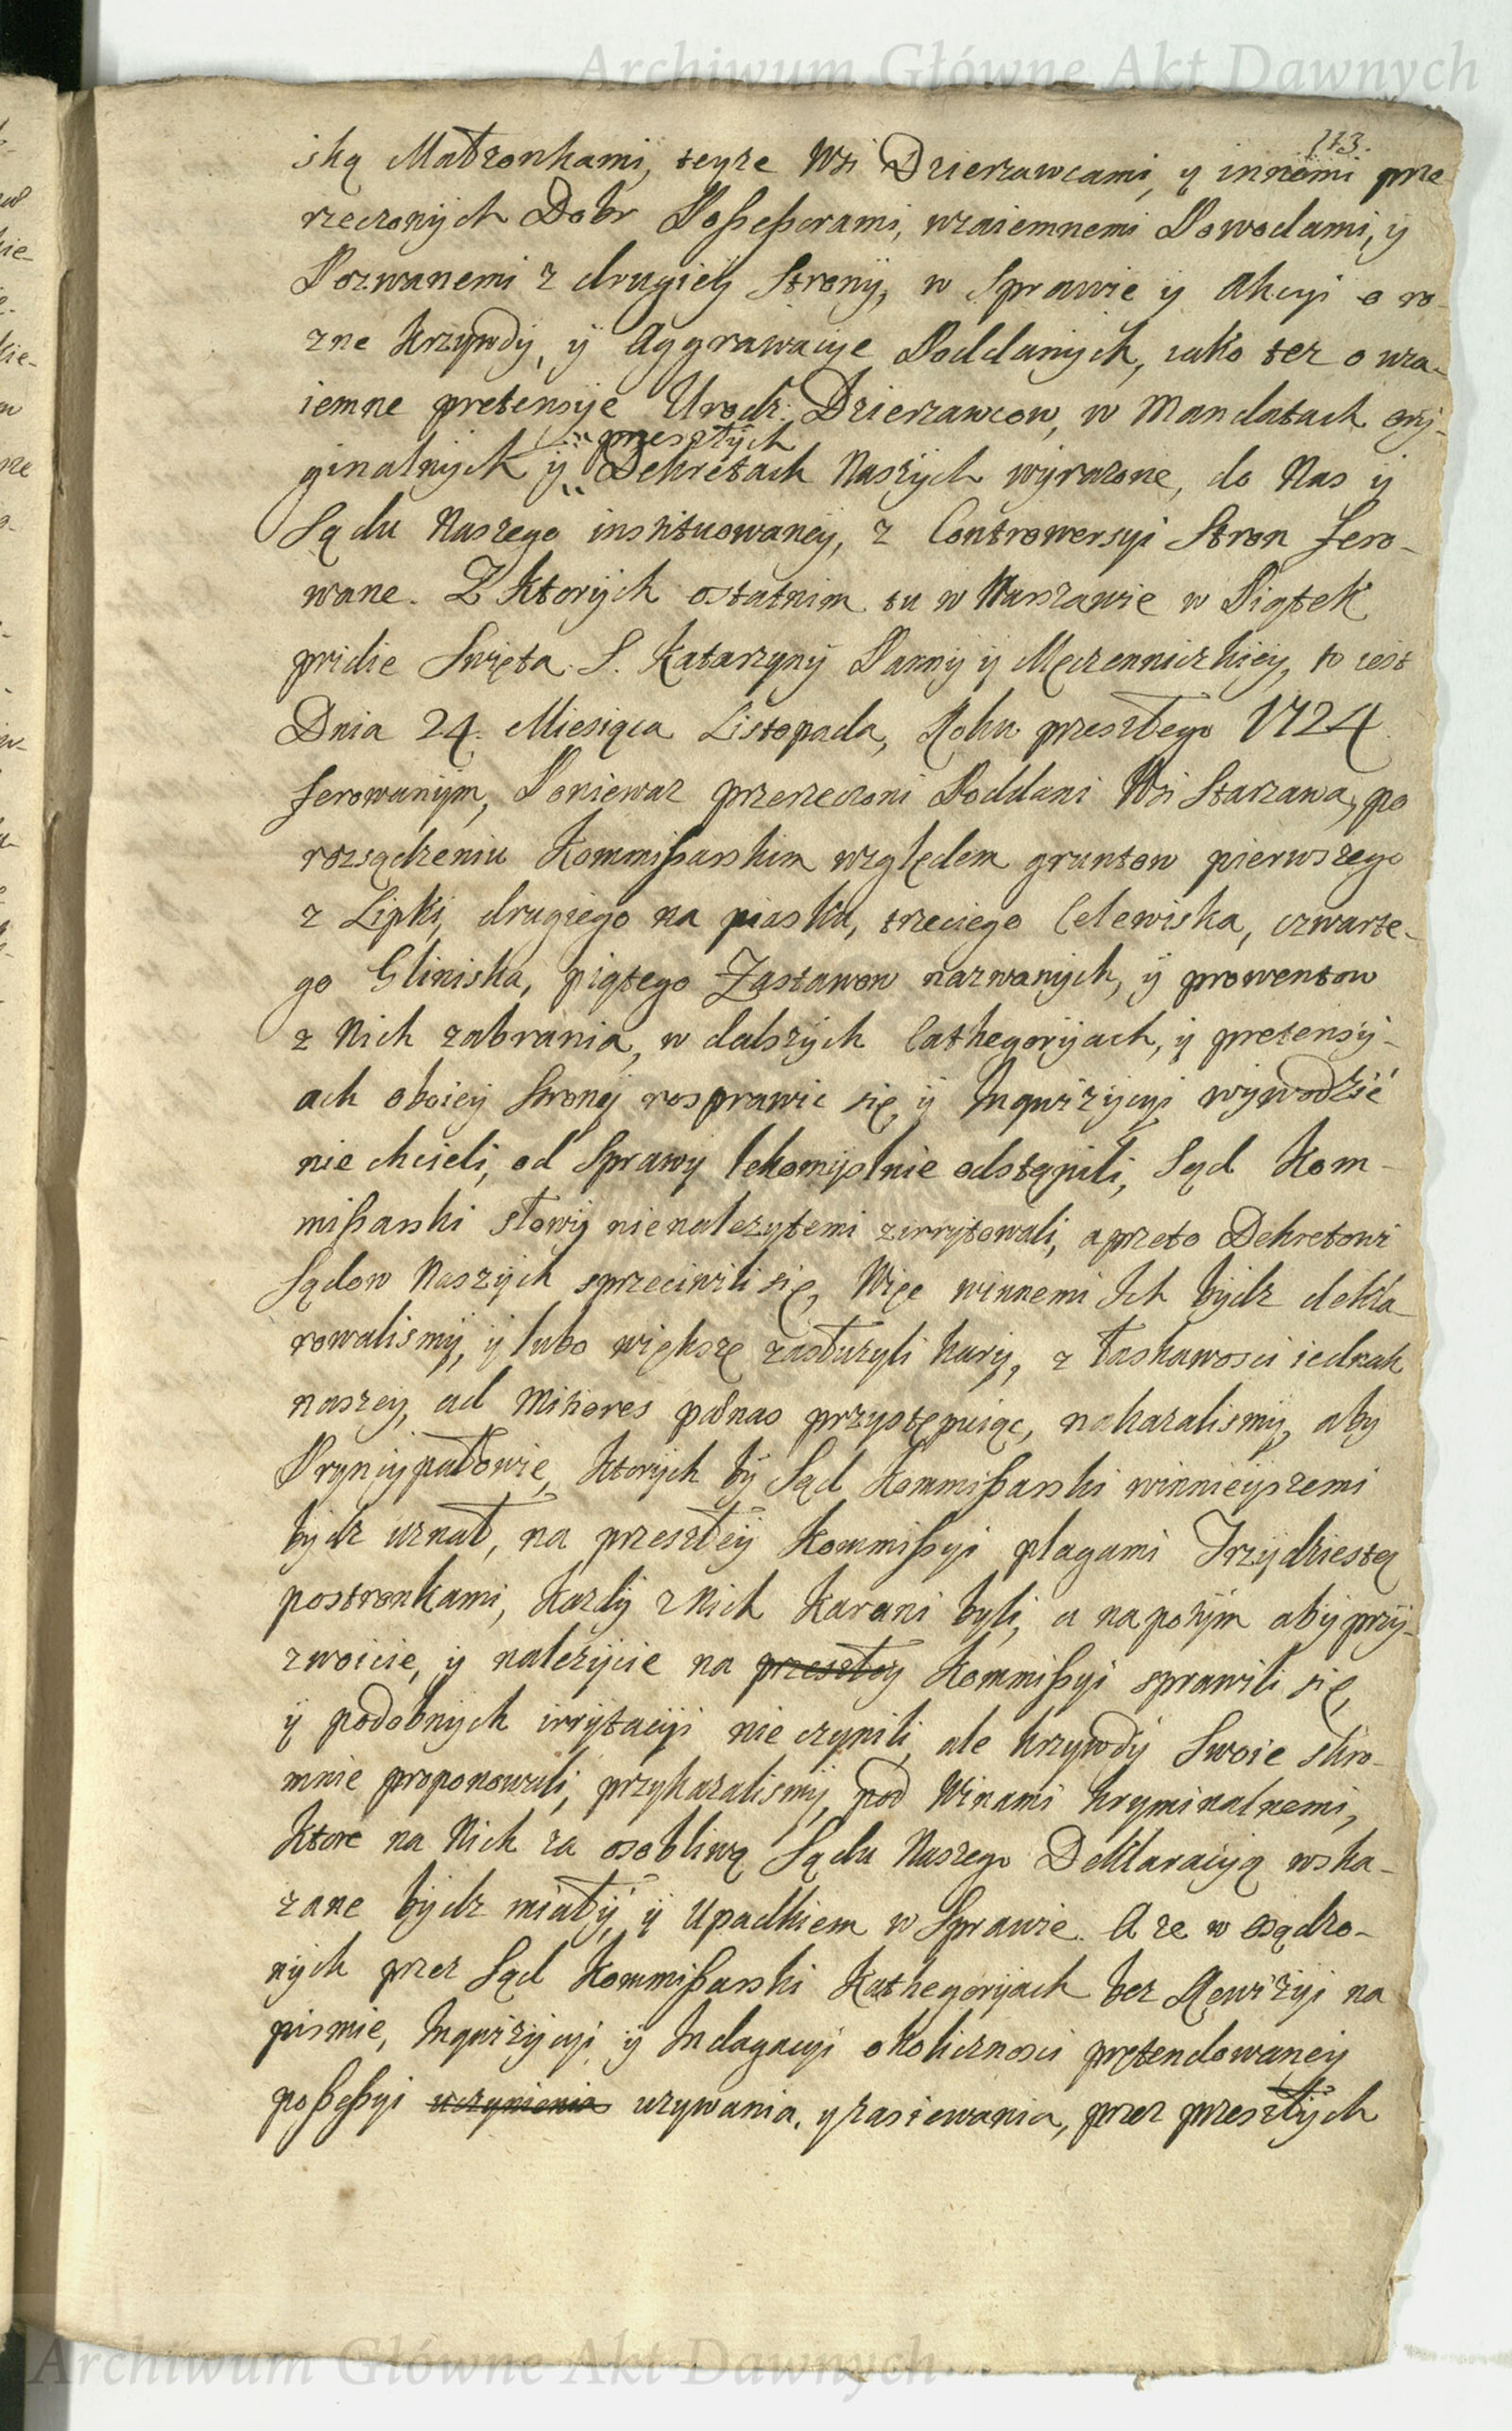 Archiwum Główne Akt Dawnych
173.
ską Małzonkami, teyze Wsi Dzierzawcami, y innemi prze
rzeczonych Dobr Possessorami, wzaiemnemi Powodami, y
Pozwanemi z drugiey Strony, w Sprawie y Akcyi o ro-
zne Krzywdy, y Aggrawacye Poddanych, iako tez o wza-
iemne pretensye Urodz: Dzierzawcow, w Mandatach ory-
przeszłych
ginalnych y Dekretach Naszych wyrazone, do Nas y
Sądu Naszego instituowaney, z Controwersyi Stron fero-
wane. Z Ktorych ostatnim tu w Warszawie w Piątek
pridie Swięta S. Katarzyny Panny y Męczenniczkiey, to iest
Dnia 24. Miesiąca Listopada, Roku przeszłego 1724
ferowanym, Poniewaz przerzeczoni Poddani Wsi Starzawa, po
rozsądzeniu Kommissarskim względem gruntow pierwszego
z Lipki, drugiego na piasku, trzeciego Celewiska, czwarte-
go Gliniska, piątego Zastawow nazwanych, y prowentow
z Nich zabrania, w dalszych Cathegoryach, y pretensy-
ach oboiey Strony rosprawic się y Inqwizycyi wywodzić
nie chcieli, od Sprawy lekomyslnie odstąpili, Sąd Kom-
missarski słowy nienalezytemi zirrytowali, a przeto Dekretowi
Sądow Naszych sprzeciwili się, Więc winnemi Ich bydz dekla-
rowalismy, y lubo większe zasłuzyli kary, z łaskawosci iednak
naszey, ad Minores pænas przystępuiąc, nakazalismy, aby
Pryncypałowie, Ktorych by Sąd Kommissarski winnieyszemi
bydz uznał, na przeszłey Kommissyi plagami Trzydziestą
postronkami, Kazdy z Nich Karani byli, a napotym aby przy-
zwoicie, y nalezycie na przeszłey Kommissyi sprawili się,
y podobnych irrytacyi nie czynili, ale krzywdy Swoie skro-
mnie proponowali, przykazalismy, pod Winami kryminalnemi,
Ktore na Nich za osobliwą Sądu Naszego Deklaracyą wska-
zane bydz miały, y Upadkiem w Sprawie. A ze w osądzo-
nych przez Sąd Kommissarski Kathegoryach bez Rewizyi na
pismie, Inqwizycyi y Indagacyi okolicznosci prętendowaney
possessyi uczynienia uzywania, y zasiewania, przez przeszłych
Archiwum Główne Akt Dawnych